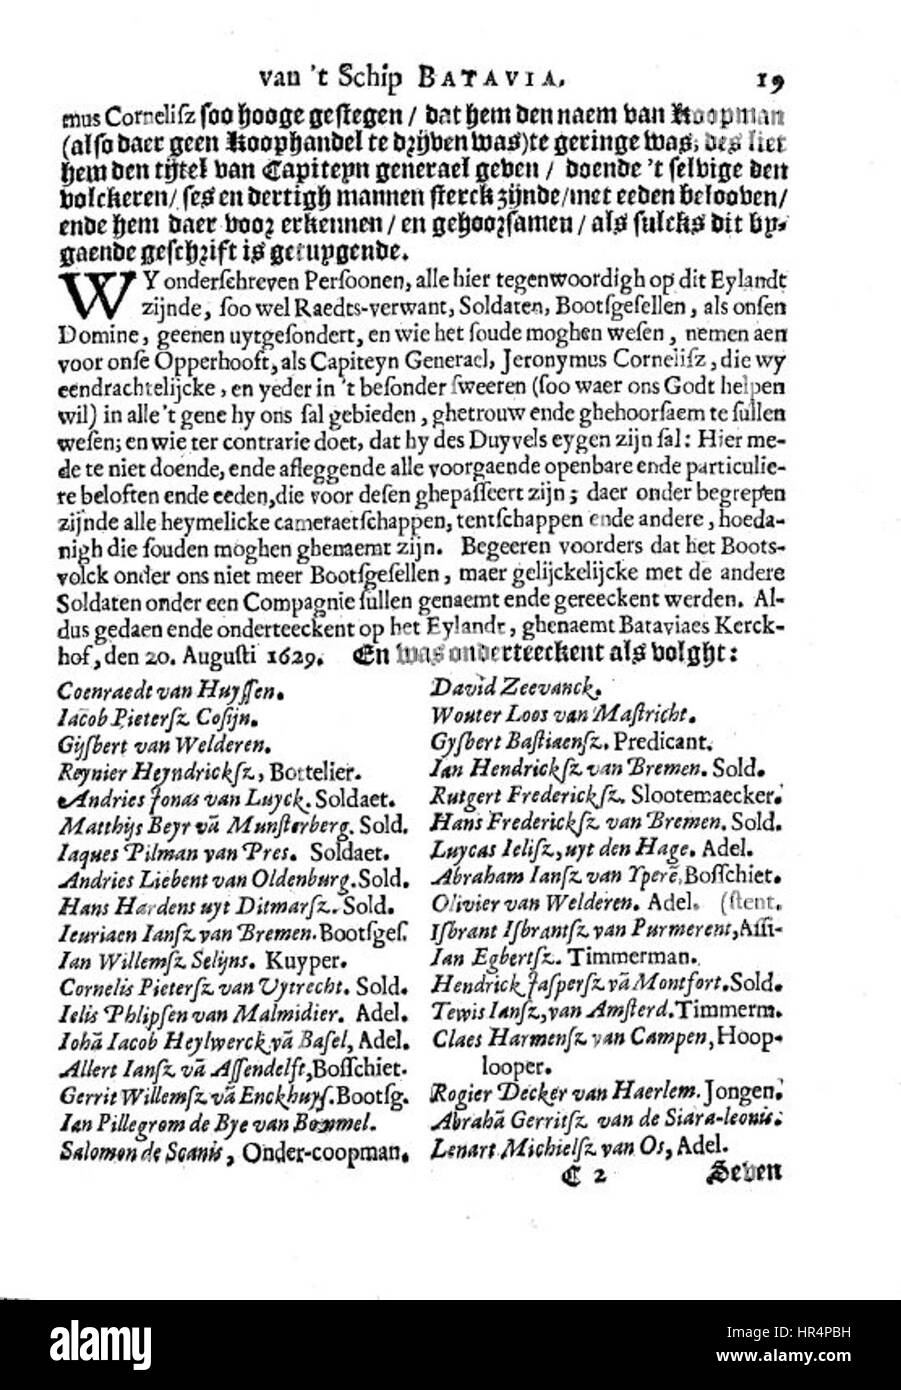 van 't Schip BATAVIA. 19
mus Cornelisz soo hooge gestegen / dat hem den naem van Koopman
(also daer geen Koophandel te drijven was) te geringe was; des liet
hem den tijtel van Capiteyn generael geven / doende 't selvige den
volckeren / ses en dertigh mannen sterck zijnde / met eeden belooven /
ende hem daer voor erkennen / en gehoorsamen / als sulcks dit by-
gaende geschrift is getuygende.
WY onderschreven Persoonen, alle hier tegenwoordigh op dit Eylandt
zijnde, soo wel Raedts-verwant, Soldaten, Bootsgesellen, als onsen
Domine, geenen uytgesondert, en wie het soude moghen wesen, nemen aen
voor onse Opperhooft, als Capiteyn Generael, Jeronymus Cornelisz, die wy
eendrachtelijcke, en yeder in 't besonder sweeren (soo waer ons Godt helpen
wil) in alle 't gene hy ons sal gebieden, ghetrouw ende ghehoorsaem te sullen
wesen; en wie ter contrarie doet, dat hy des Duyvels eygen zijn sal: Hier me-
de te niet doende, ende afleggende alle voorgaende openbare ende particulie-
re beloften ende eeden, die voor desen ghepasseert zijn; daer onder begrepen
zijnde alle heymelicke cameraetschappen, tentschappen ende andere, hoeda-
nigh die souden moghen ghenaemt zijn. Begeeren voorders dat het Boots-
volck onder ons niet meer Bootsgesellen, maer gelijckelijcke met de andere
Soldaten onder een Compagnie sullen genaemt ende gereeckent werden. Al-
dus gedaen ende onderteeckent op het Eylandt, ghenaemt Bataviaes Kerck-
hof, den 20. Augusti 1629. En was onderteeckent als volght:
Coenraedt van Huyssen.
Iacob Pietersz Cosijn.
Gijsbert van Welderen.
Reynier Heyndricksz, Bottelier.
Andries Jonas van Luyck. Soldaet.
Matthijs Beyr vā Munsterberg. Sold.
Iaques Pilman van Pres. Soldaet.
Andries Liebent van Oldenburg. Sold.
Hans Hardens uyt Ditmarsz. Sold.
Ieuriaen Iansz van Bremen. Bootsges.
Ian Willemsz Selijns. Kuyper.
Cornelis Pietersz van Uytrecht. Sold.
Ielis Phlipsen van Malmidier. Adel.
Iohā Iacob Heylwerck vā Basel, Adel.
Allert Iansz vā Assendelft, Bosschiet.
Gerrit Willemsz vā Enckhuys. Bootsg.
Ian Pillegrom de Bye van Bommel.
Salomon de Scanis, Onder-coopman.
David Zeevanck.
Wouter Loos van Mastricht.
Gysbert Bastiaensz. Predicant.
Ian Hendricksz van Bremen. Sold.
Rutgert Fredericksz. Slootemaecker.
Hans Fredericksz van Bremen. Sold.
Luycas Ielisz, uyt den Hage. Adel.
Abraham Iansz van Yperē, Bosschiet.
Olivier van Welderen. Adel. (stent.
Isbrant Isbrantsz van Purmerent, Assi-
Ian Egbertsz. Timmerman.
Hendrick Jaspersz vā Montfort. Sold.
Tewis Iansz, van Amsterd. Timmerm.
Claes Harmensz van Campen, Hoop-
looper.
Rogier Decker van Haerlem. Jongen.
Abrahā Gerritsz van de Siara-leonis.
Lenart Michielsz van Os, Adel.
C 2 Seven
alamy
Image ID: HR4PBH
www.alamy.com